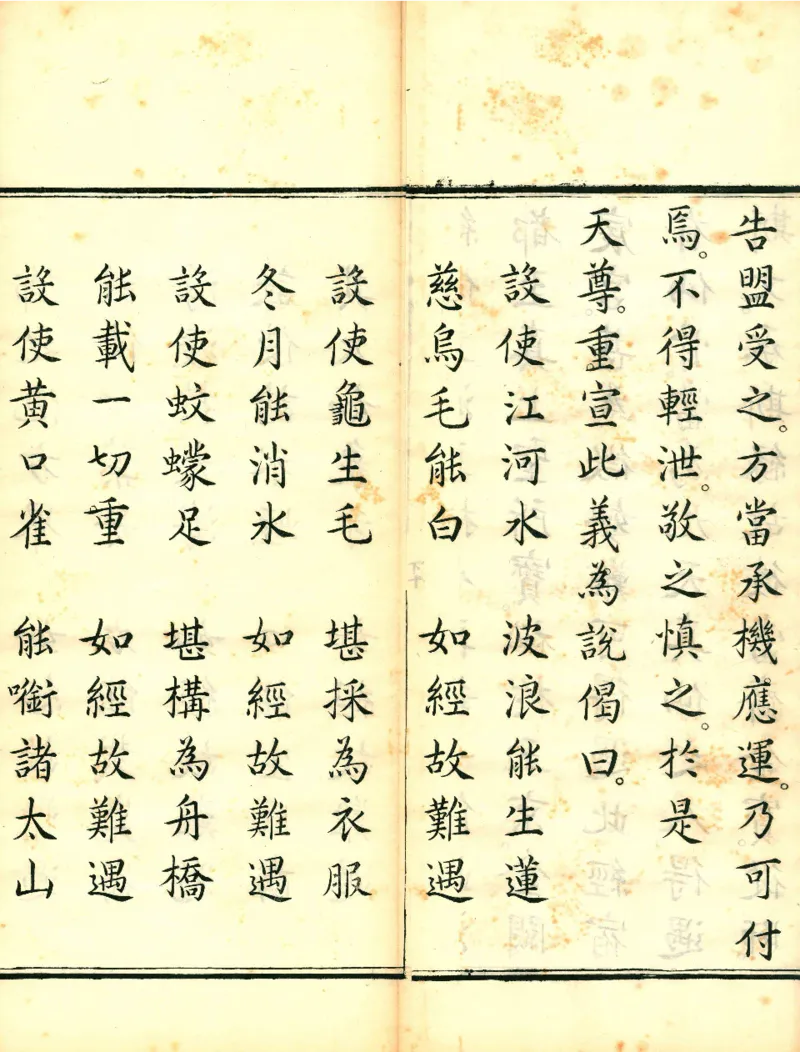 告盟受之。方當承機應運。乃可付
焉。不得輕泄。敬之慎之。於是
天尊。重宣此義。為說偈曰。
設使江河水　波浪能生蓮
慈烏毛能白　如經故難遇
設使龜生毛　堪採為衣服
冬月能消氷　如經故難遇
設使蚊蠓足　堪構為舟橋
能載一切重　如經故難遇
設使黄口雀　能㘅諸太山